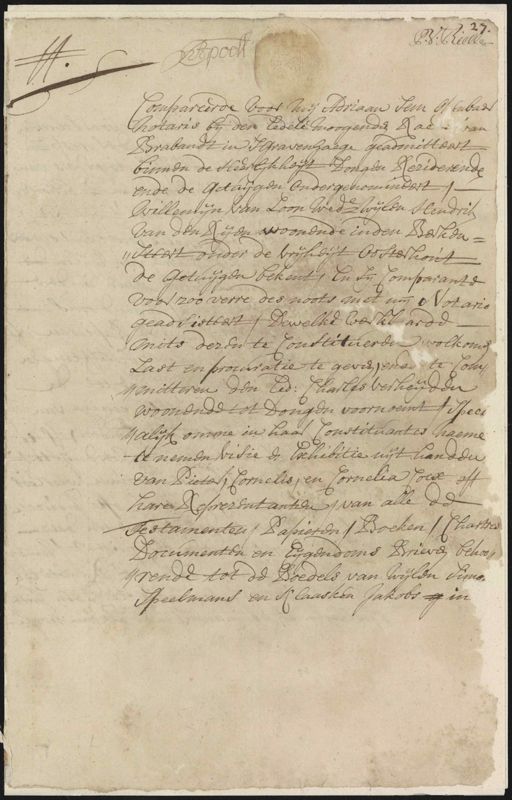 27.
Compareerde voor mij Adriaan
Notaris bij den Edele Mogende Rade van
Brabandt in S'gravenhaege geadmitteert
binnen de Heerlijkheijt Dongen Residerende
ende de Getuijgen ondergenomineert /
Willemijn van Loon Wede: Wijlen Hendrik
van den Rijen woonende in den
onder de vrijheijt Oosterhout
de Getuijgen bekent / En sij Comparante
voor zoo verre des noots met mij Notaris
geadsisteert / Dewelke verklaarde
mits dezen te Constitueren volkome
Last en procuratie te geve, ende te Com
mitteren den Ed: Charles verheijden
woonende tot Dongen voornoemt / Spec
ialijk omme in haar Constituantes naeme
te nemen visie & Exhibitie uijt handden
van Pieter, Cornelis, en Cornelia off
hare Representanten / van alle de
Testamenten / Papieren / Boeken / Chartres
Documenten en Eijgendoms Brieve, behoo
rende tot de Boedels van Wijlen
Speelmans en Klaaske Jakobs in